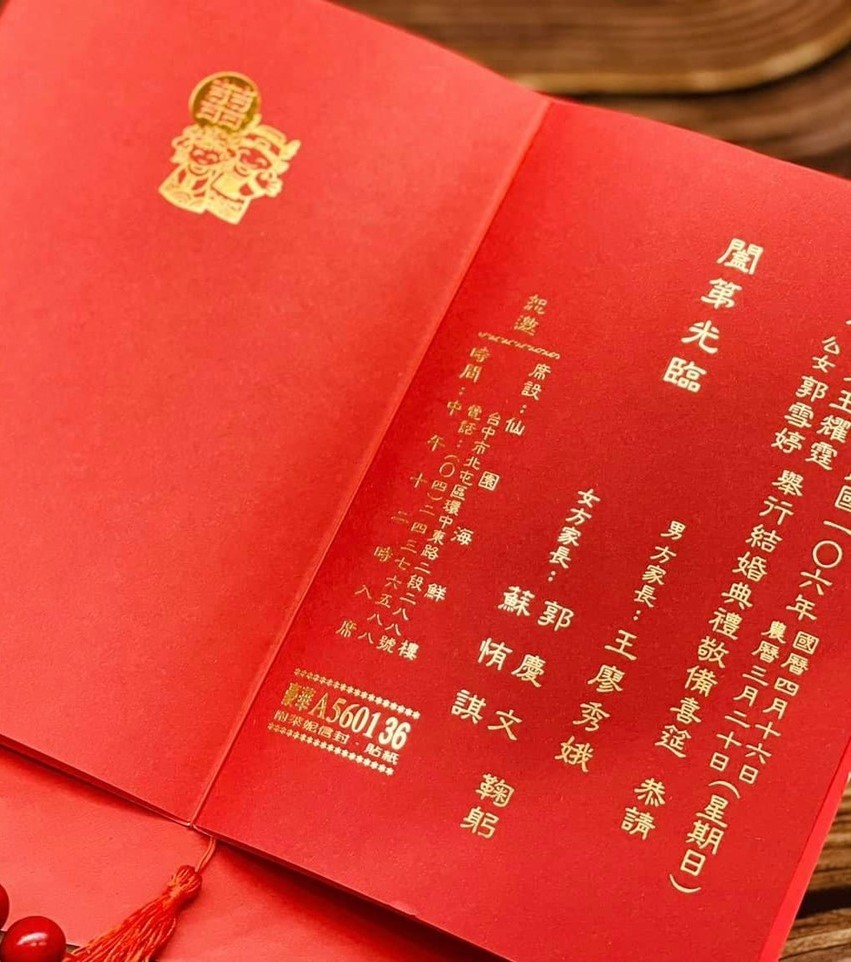 囍
國一〇六年
國曆四月十六日
農曆三月二十日
(星期日)
王耀霆
公女郭雪婷
舉行結婚典禮敬備喜筵 恭請
闔第光臨
男方家長：王廖秀娥
女方家長：郭慶文
蘇侑諆
鞠躬
恕邀
席設：仙園海鮮樓
台中市北屯區環中東路二段二八八號
電話：(〇四)二四三七六五八八
時間：中午十二時入席
豪華A560136
附萊妮信封．貼紙